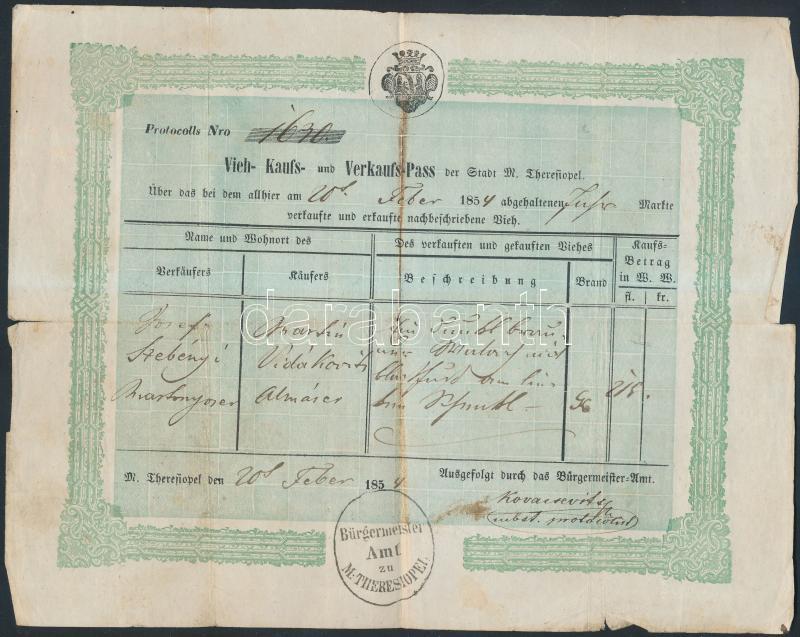 Protocolls Nro 1630
Vieh- Kaufs- und Verkaufs-Pass der Stadt M. Theresiopel.
Über das bei dem allhier am 20t Feber 1854 abgehaltenen Markte
verkaufte und erkaufte nachbeschriebene Vieh.
Name und Wohnort des
Des verkauften und gekauften Viehes
Kaufs-Betrag in W. W.
Verkäufers
Käufers
Beschreibung
Brand
fl. kr.
Josef
Szebényi
Martin
Vidákovits
Almáser
darabanth
M. Theresiopel den 20t Feber 1854
Ausgefolgt durch das Bürgermeister-Amt.
Kovacsevits
Bürgermeister
Amt
zu
M: THERESIOPEL